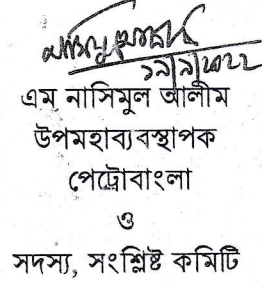 ১৯/৯/২০২২
এম নাসিমুল আলীম
উপমহাব্যবস্থাপক
পেট্রোবাংলা
ও
সদস্য, সংশ্লিষ্ট কমিটি